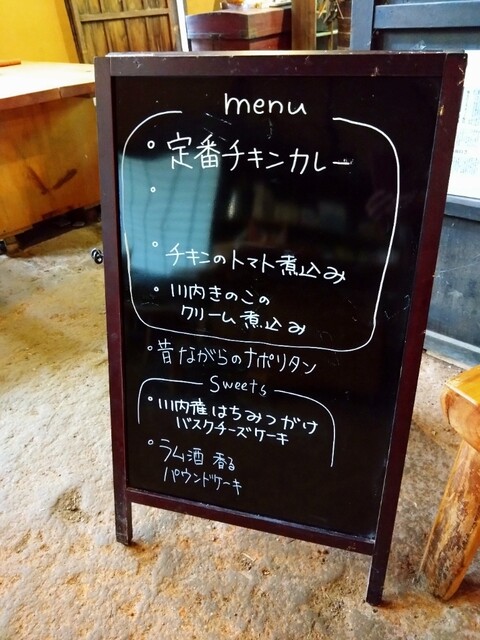 menu
・定番チキンカレー
・
・チキンのトマト煮込み
・川内きのこの
クリーム煮込み
・昔ながらのナポリタン
Sweets
・川内産はちみつがけ
バスクチーズケーキ
・ラム酒香る
パウンドケーキ